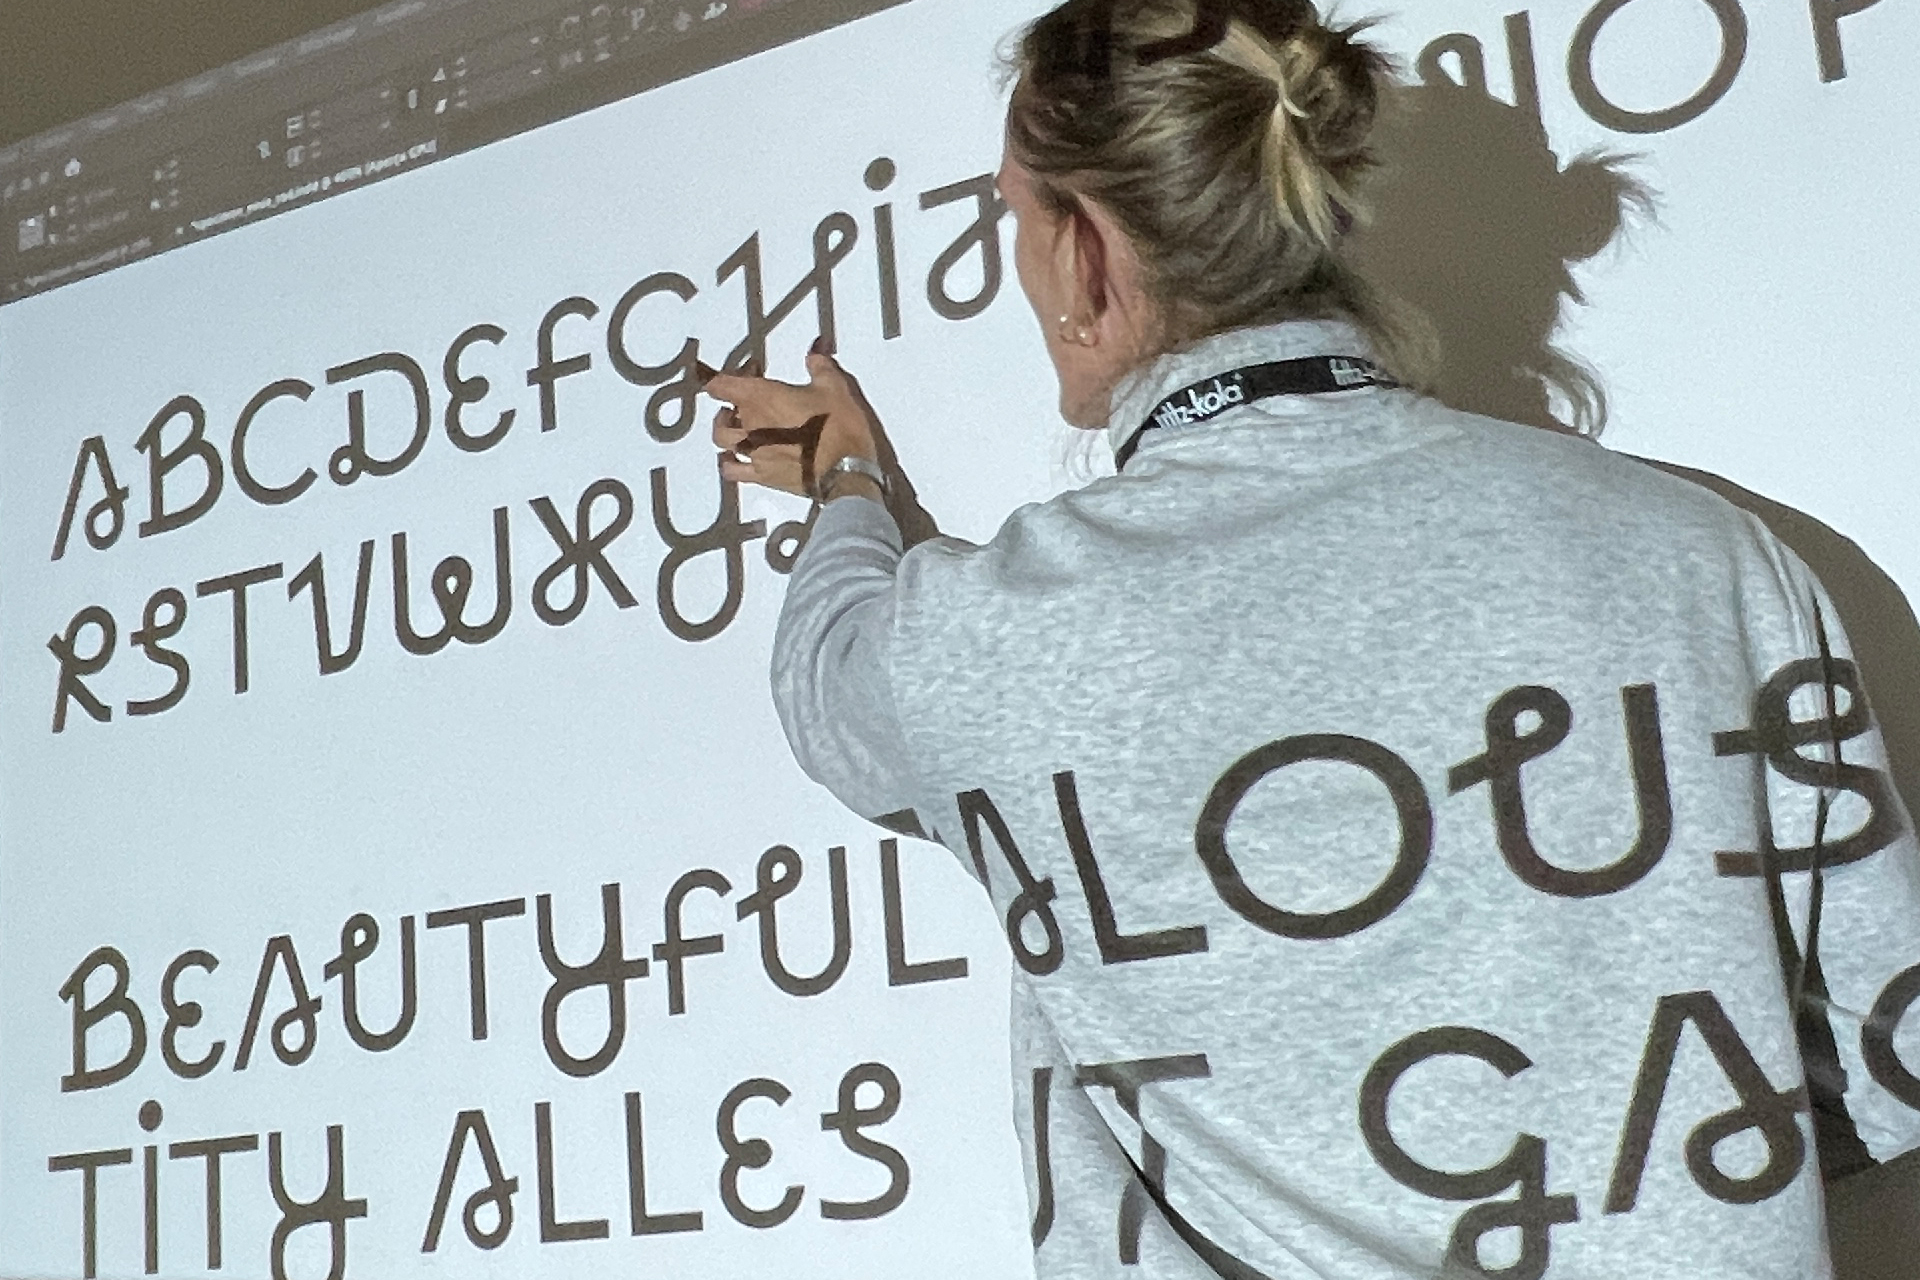 ABCDEFGHIJ NOP
RSTVWXYZ
BEAUTYFUL ALOUS
TITY ALLES UT GA
fritz-kola